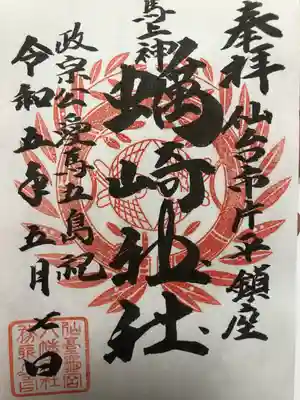 奉拝 仙台市片平鎮座
馬上神
蛎崎神社
政宗公愛馬五島祀
令和五年五月七日